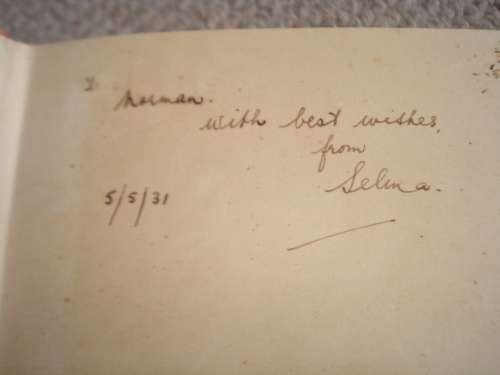 Norman.
with best wishes,
from
Selma.
5/5/31